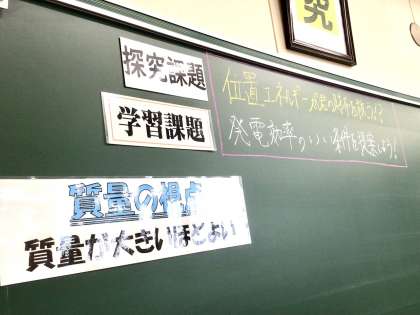 究
探究課題
位置エネルギー
発電効率のいい条件を提案しよう!
学習課題
質量の視点
質量が大きいほどよい